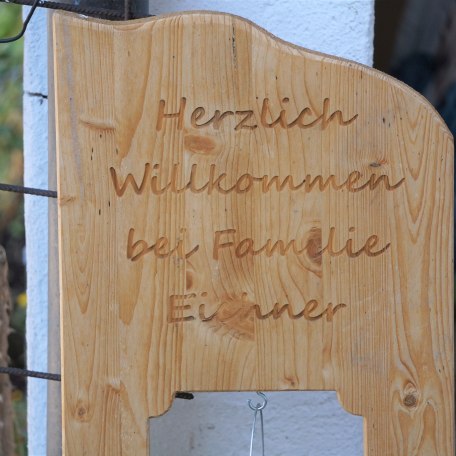 Herzlich
Willkommen
bei Familie